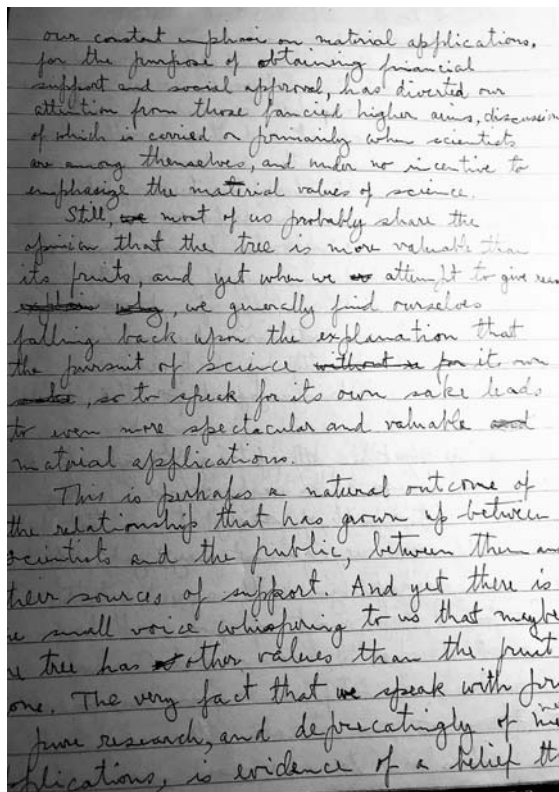 our constant emphasis on material applications,
for the purpose of obtaining financial
support and social approval, has diverted our
attention from those fancied higher aims, discussion
of which is carried on primarily when scientists
are among themselves, and under no incentive to
emphasize the material values of science.
Still, we most of us probably share the
opinion that the tree is more valuable than
its fruits, and yet when we attempt to give
explain why, we generally find ourselves
falling back upon the explanation that
the pursuit of science without for its own
sake, so to speak for its own sake leads
to even more spectacular and valuable and
material applications.
This is perhaps a natural outcome of
the relationship that has grown up between
scientists and the public, between them
their sources of support. And yet there is
small voice whispering to us that maybe
tree has other values than the fruit
one. The very fact that we speak with
pure research, and deprecatingly of
applications, is evidence of a belief